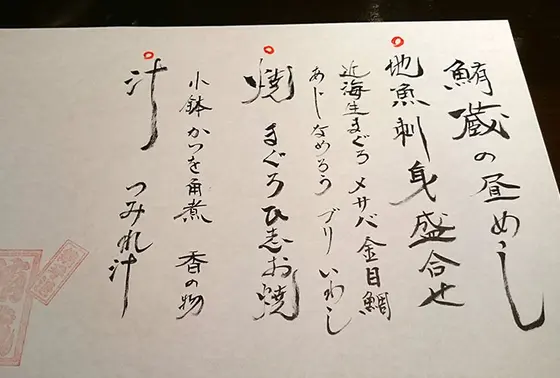 鮪蔵の昼めし
地魚刺身盛合せ
近海生まぐろ メサバ 金目鯛
あじなめろう ブリ いわし
焼 まぐろひ志お焼
小鉢 かつを角煮 香の物
汁 つみれ汁